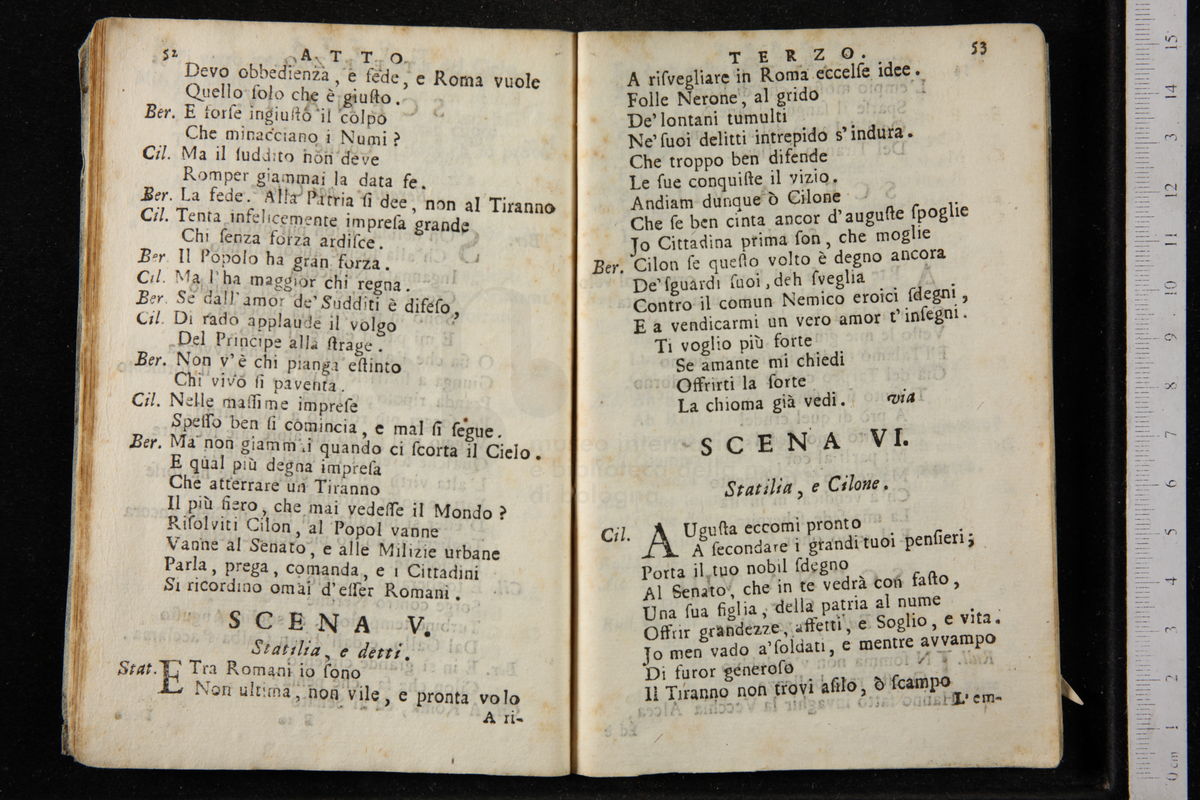 52
ATTO
Devo obbedienza, e fede, e Roma vuole
Quello ſolo che è giuſto.
Ber. E forſe ingiuſto il colpo
Che minacciano i Numi?
Cil. Ma il ſuddito non deve
Romper giammai la data fe.
Ber. La fede. Alla Patria ſi dee, non al Tiranno
Cil. Tenta infelicemente impreſa grande
Chi ſenza forza ardiſce.
Ber. Il Popolo ha gran forza.
Cil. Ma l'ha maggior chi regna.
Ber. Se dall'amor de' Sudditi è difeſo,
Cil. Di rado applaude il volgo
Del Principe alla ſtrage.
Ber. Non v'è chi pianga eſtinto
Chi vivo ſi paventa.
Cil. Nelle maſſime impreſe
Speſſo ben ſi comincia, e mal ſi ſegue.
Ber. Ma non giammai quando ci ſcorta il Cielo.
E qual più degna impreſa
Che atterrare un Tiranno
Il più fiero, che mai vedeſſe il Mondo?
Riſolviti Cilon, al Popol vanne
Vanne al Senato, e alle Milizie urbane
Parla, prega, comanda, e i Cittadini
Si ricordino omai d'eſſer Romani.
SCENA V.
Statilia, e detti.
Stat. E Tra Romani io ſono
Non ultima, non vile, e pronta volo
A ri-
TERZO.
53
A riſvegliare in Roma eccelſe idee.
Folle Nerone, al grido
De' lontani tumulti
Ne' ſuoi delitti intrepido s'indura.
Che troppo ben difende
Le ſue conquiſte il vizio.
Andiam dunque ò Cilone
Che ſe ben cinta ancor d'auguſte ſpoglie
Jo Cittadina prima ſon, che moglie
Ber. Cilon ſe queſto volto è degno ancora
De' ſguardi ſuoi, deh ſveglia
Contro il comun Nemico eroici ſdegni,
E a vendicarmi un vero amor t'inſegni.
Ti voglio più forte
Se amante mi chiedi
Offrirti la ſorte
La chioma già vedi. via
SCENA VI.
Statilia, e Cilone.
Cil. AUguſta eccomi pronto
A ſecondare i grandi tuoi penſieri;
Porta il tuo nobil ſdegno
Al Senato, che in te vedrà con faſto,
Una ſua figlia, della patria al nume
Offrir grandezze, affetti, e Soglio, e vita.
Jo men vado a' ſoldati, e mentre avvampo
Di furor generoſo
Il Tiranno non trovi aſilo, ò ſcampo
L'em-